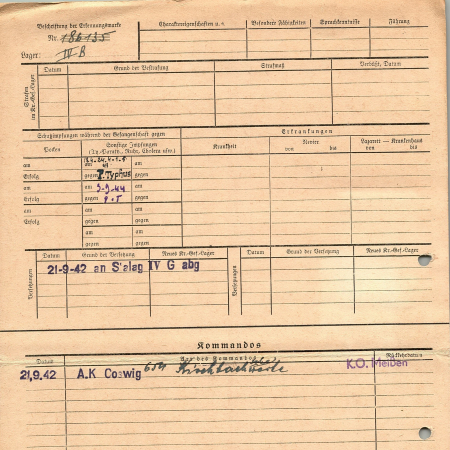 Beschriftung der Erkennungsmarke
Nr. 186135
Lager: IV B
Charaktereigenschaften u. a.
Besondere Fähigkeiten
Sprachkenntnisse
Führung
Strafen im Kr.-Gef.-Lager
Datum
Grund der Bestrafung
Strafmaß
Verbüßt, Datum
Schutzimpfungen während der Gefangenschaft gegen
Erkrankungen
Pocken
Sonstige Impfungen
(Ty.-Parath., Ruhr, Cholera usw.)
Krankheit
Revier
von bis
Lazarett — Krankenhaus
von bis
am am
Erfolg gegen P. Typhus gegen
am am 9-9-44 am
Erfolg gegen gegen
am am am
Erfolg gegen gegen
am am
gegen gegen
Versetzungen
Datum
Grund der Versetzung
Neues Kr.-Gef.-Lager
Versetzungen
Datum
Grund der Versetzung
Neues Kr.-Gef.-Lager
21-9-42 an Stalag IV G abg
Kommandos
Datum
Art des Kommandos
Rückkehrdatum
21.9.42 A.K Coswig K.O. Meißen